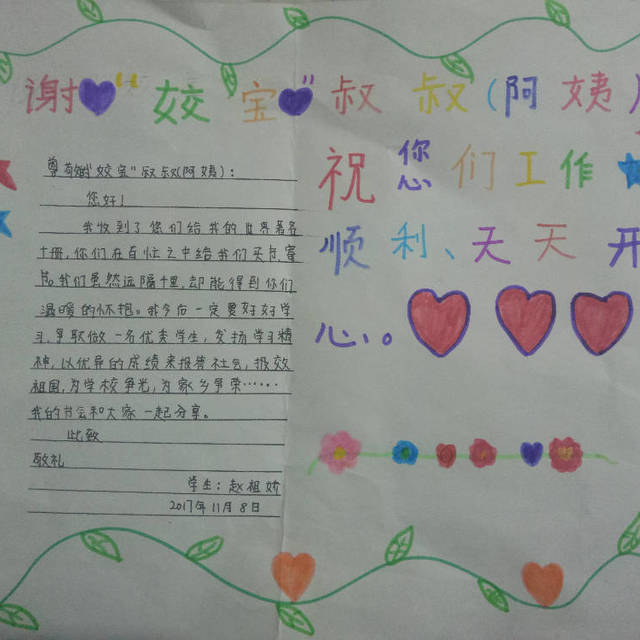 谢"姣宝"叔叔(阿姨)
祝您们工作
顺利、天天开
心。
尊敬的"姣宝"叔叔(阿姨):
您好!
我收到了您们给我的世界著名
十册,你们在百忙之中给我们买书、寄
书。我们虽然远隔千里,却能得到你们
温暖的怀抱。我今后一定要好好学
习,争取做一名优秀学生,发扬学习精
神,以优异的成绩来报答社会,报效
祖国,为学校争光,为家乡争荣……
我的书会和大家一起分享。
此致
敬礼
学生:赵祖娇
2017年11月8日